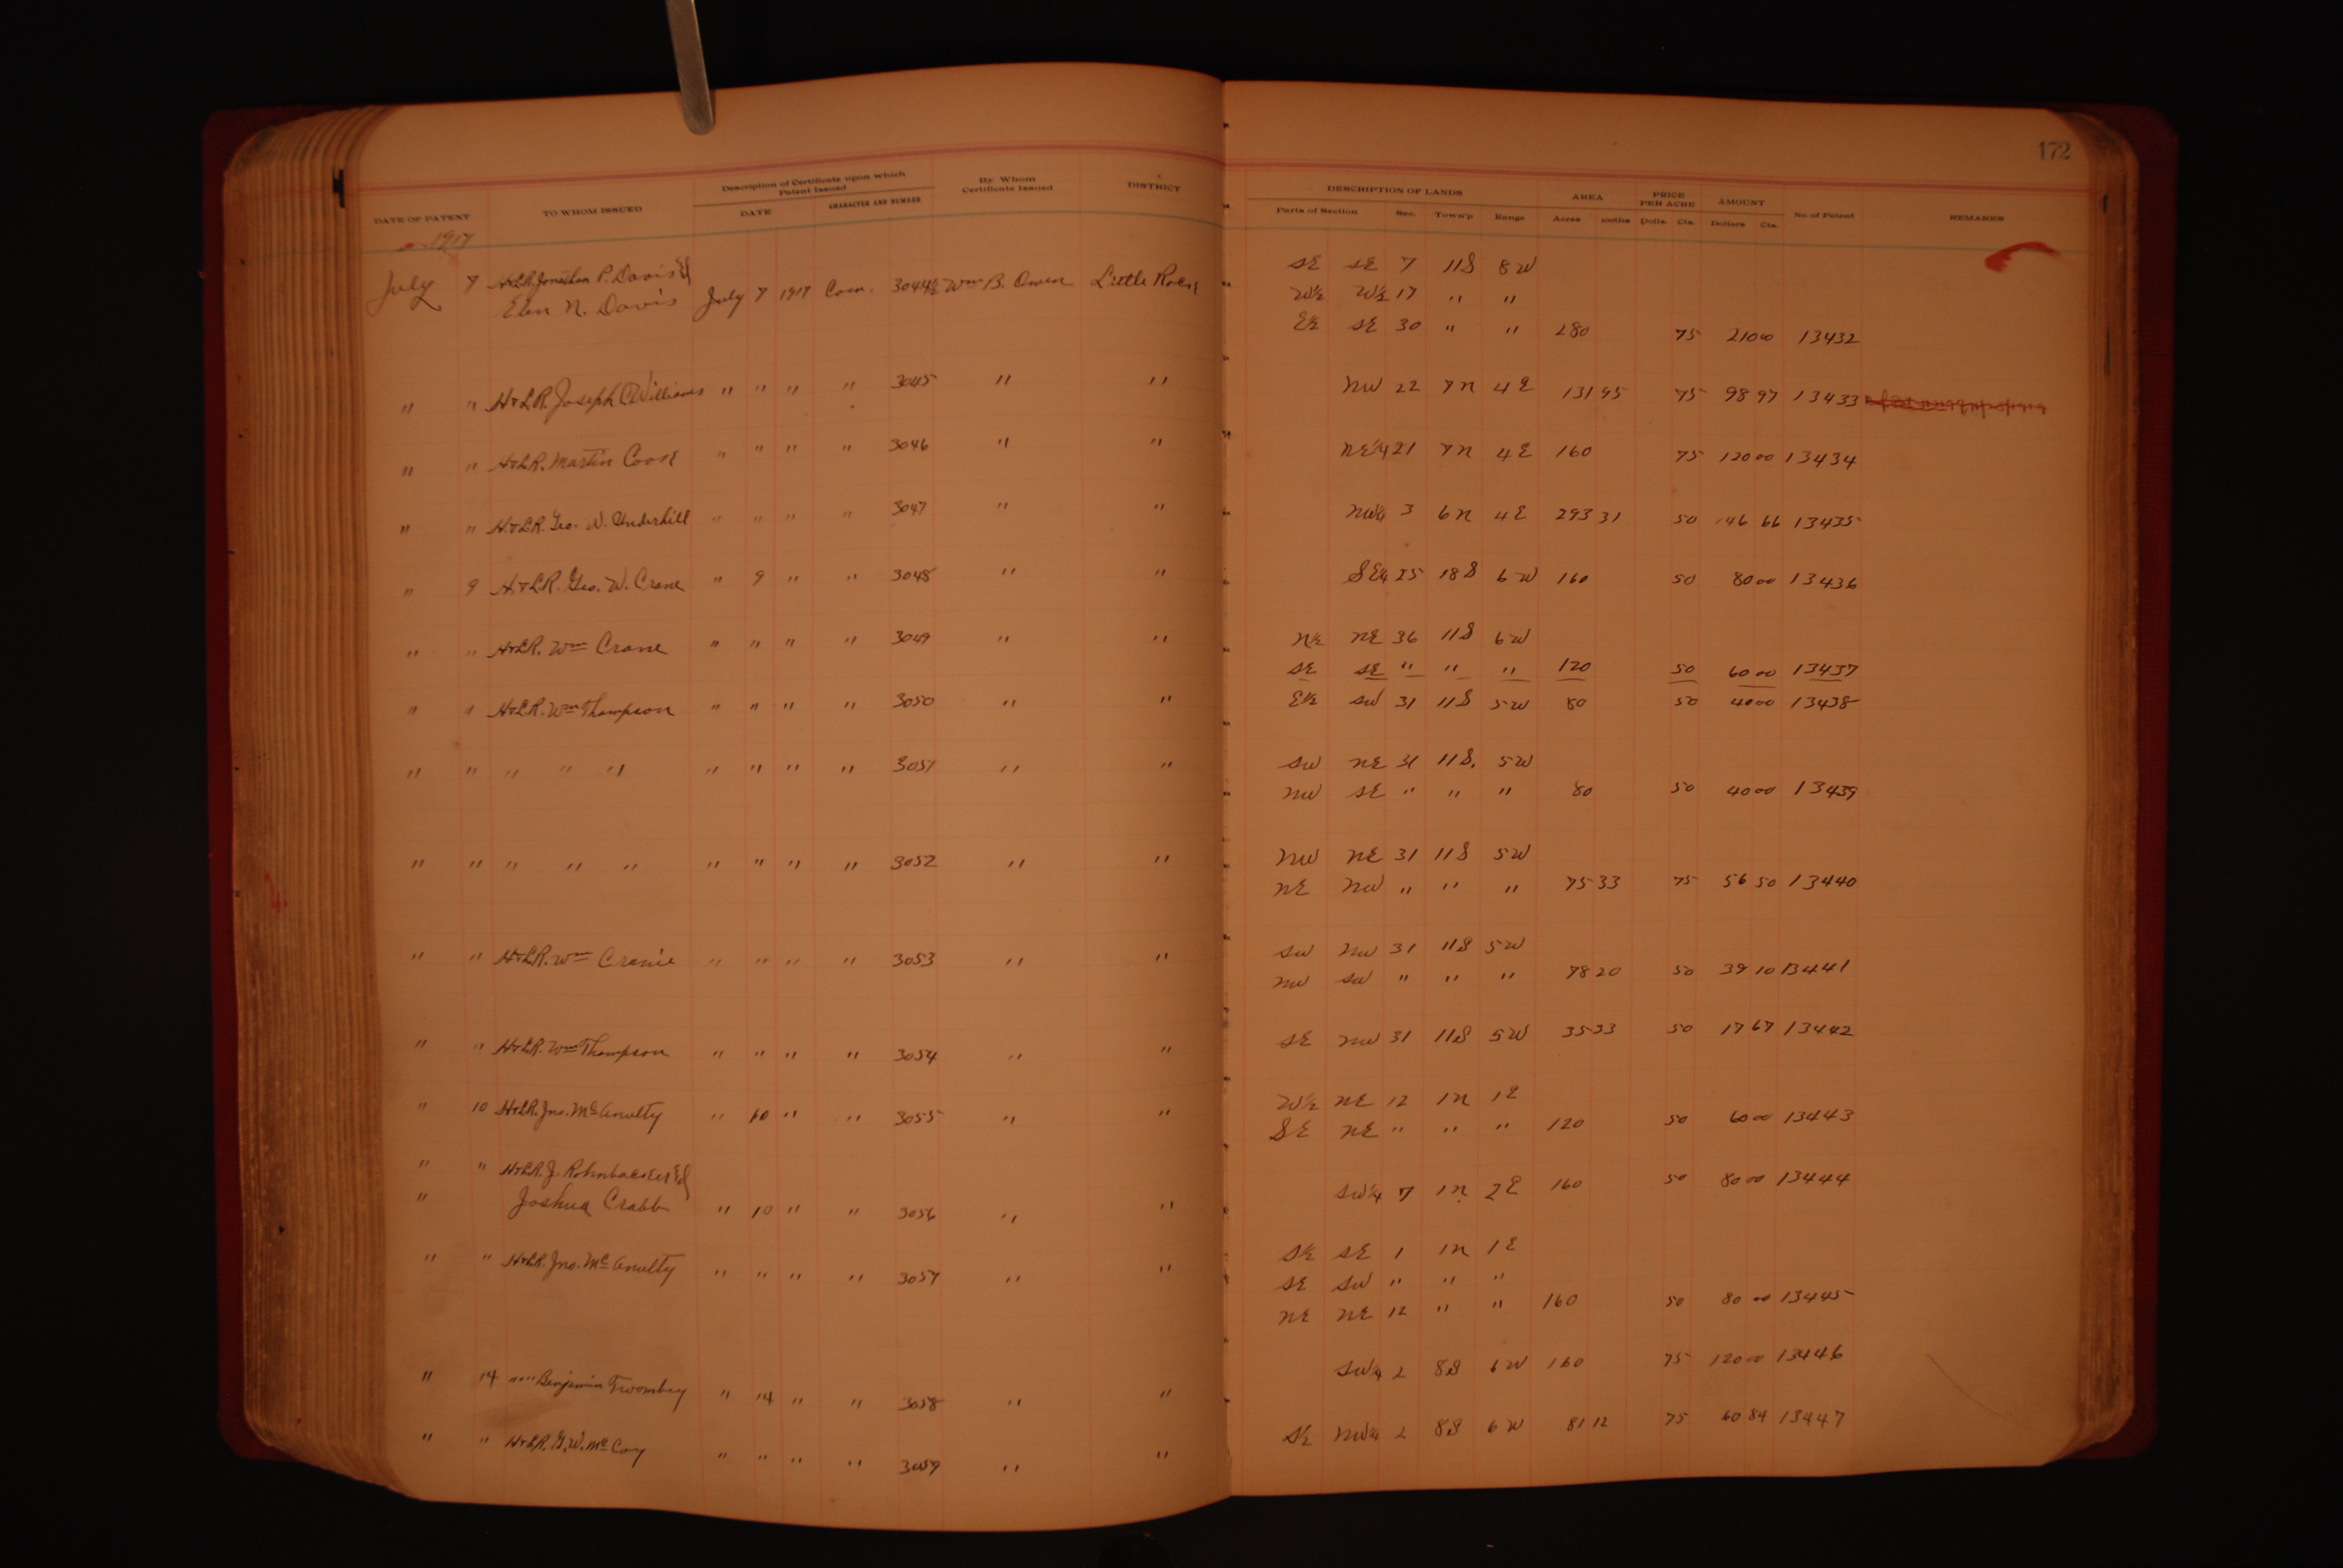 172
DATE OF PATENT TO WHOM ISSUED Description of Certificate upon which Patent Issued DATE CHARACTER AND NUMBER By Whom Certificate Issued DISTRICT DESCRIPTION OF LANDS Parts of Section Sec. Town'p Range AREA Acres 100ths PRICE PER ACRE Dolls. Cts. AMOUNT Dollars Cts. No. of Patent REMARKS
1917
July 7 H&LR. Jonathan P. Davis & July 7 1917 Com. 3044½ Wm B. Owen Little Rock SE SE 7 11S 8W
Eben N. Davis W½ W½ 17 " "
E½ SE 30 " " 280 75 210 00 13432
" " H&LR. Joseph C Williams " " " " 3045 " " NW 22 7N 4E 131 95 75 98 97 13433
" " H&LR. Martin Cook " " " " 3046 " " NE¼ 21 7N 4E 160 75 120 00 13434
" " H&LR. Geo. W. Underhill " " " " 3047 " " NW¼ 3 6N 4E 293 31 50 146 66 13435
" 9 H&LR. Geo. W. Crane " 9 " " 3048 " " SE¼ 25 18S 6W 160 50 80 00 13436
" " H&LR. Wm Crane " " " " 3049 " " N½ NE 36 11S 6W
SE SE " " " 120 50 60 00 13437
" " H&LR. Wm Thompson " " " " 3050 " " E½ SW 31 11S 5W 80 50 40 00 13438
" " " " " " " " " 3051 " " SW NE 31 11S. 5W
NW SE " " " 80 50 40 00 13439
" " " " " " " " " 3052 " " NW NE 31 11S 5W
NE NW " " " 75 33 75 56 50 13440
" " H&LR. Wm Cranie " " " " 3053 " " SW NW 31 11S 5W
NW SW " " " 78 20 50 39 10 13441
" " H&LR. Wm Thompson " " " " 3054 " " SE NW 31 11S 5W 35 33 50 17 67 13442
" 10 H&LR. Jno. McAnulty " 10 " " 3055 " " W½ NE 12 1N 1E
SE NE " " " 120 50 60 00 13443
" " H&LR. J. Rohnbacker &
" Joshua Crabb " 10 " " 3056 " " SW¼ 7 1N 2E 160 50 80 00 13444
" " H&LR. Jno. McAnulty " " " " 3057 " " S½ SE 1 1N 1E
SE SW " " "
NE NE 12 " " 160 50 80 00 13445
" 14 " " Benjamin Twombey " 14 " " 3058 " " SW¼ 2 8S 6W 160 75 120 00 13446
" " H&LR. G. W. McCoy " " " " 3059 " " S½ NW¼ 2 8S 6W 81 12 75 60 84 13447